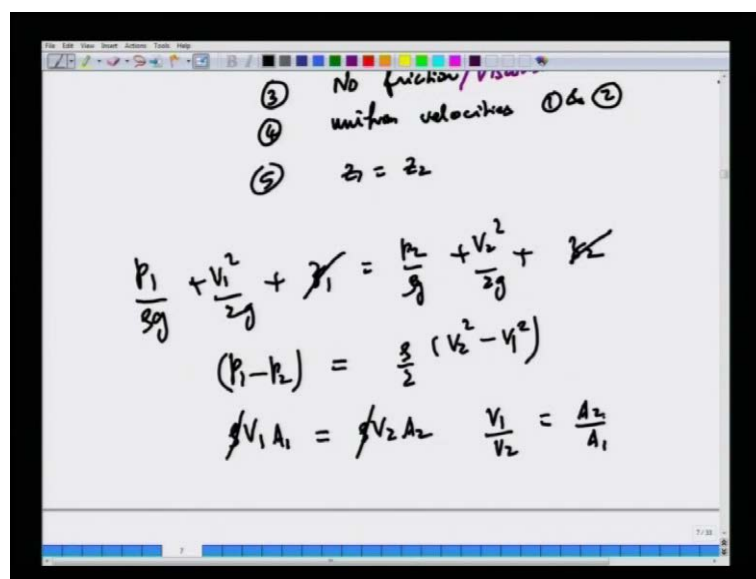 File Edit View Insert Actions Tools Help
③ No friction/
④ uniform velocities ① & ②
⑤ z₁ = z₂
p₁/ρg + V₁²/2g + z₁ = p₂/ρg + V₂²/2g + z₂
(p₁ - p₂) = ρ/2 (V₂² - V₁²)
ρV₁A₁ = ρV₂A₂ V₁/V₂ = A₂/A₁
7